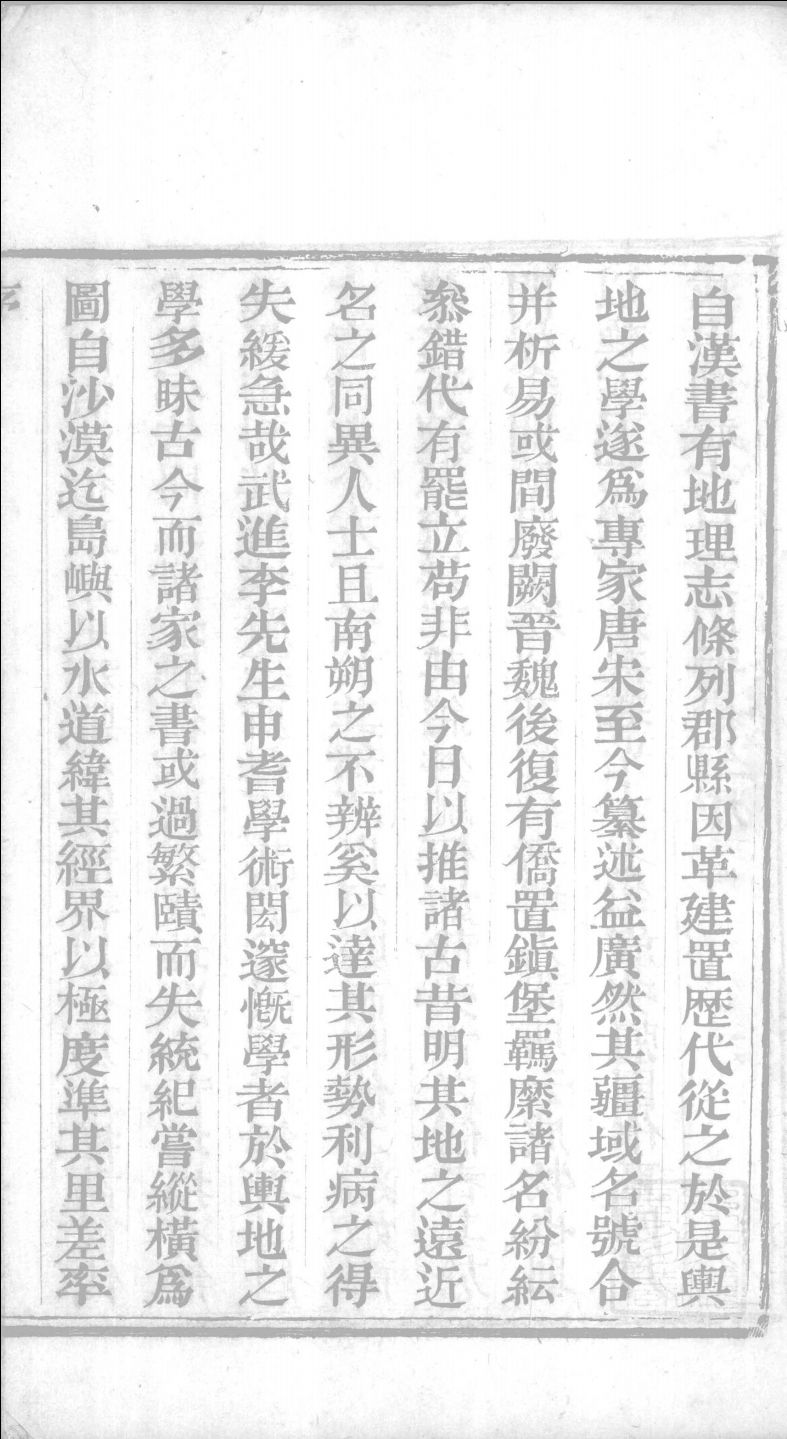 自漢書有地理志條列郡縣因革建置歷代從之於是輿
地之學遂爲專家唐宋至今纂述益廣然其疆域名號合
并析易或間廢闕晉魏後復有僑置鎭堡羈縻諸名紛紜
叅錯代有罷立苟非由今日以推諸古昔明其地之遠近
名之同異人士且南朔之不辨奚以達其形勢利病之得
失緩急哉武進李先生申耆學術閎邃慨學者於輿地之
學多昧古今而諸家之書或過繁賾而失統紀嘗縱橫爲
圖自沙漠迄島嶼以水道緯其經界以極度準其里差率